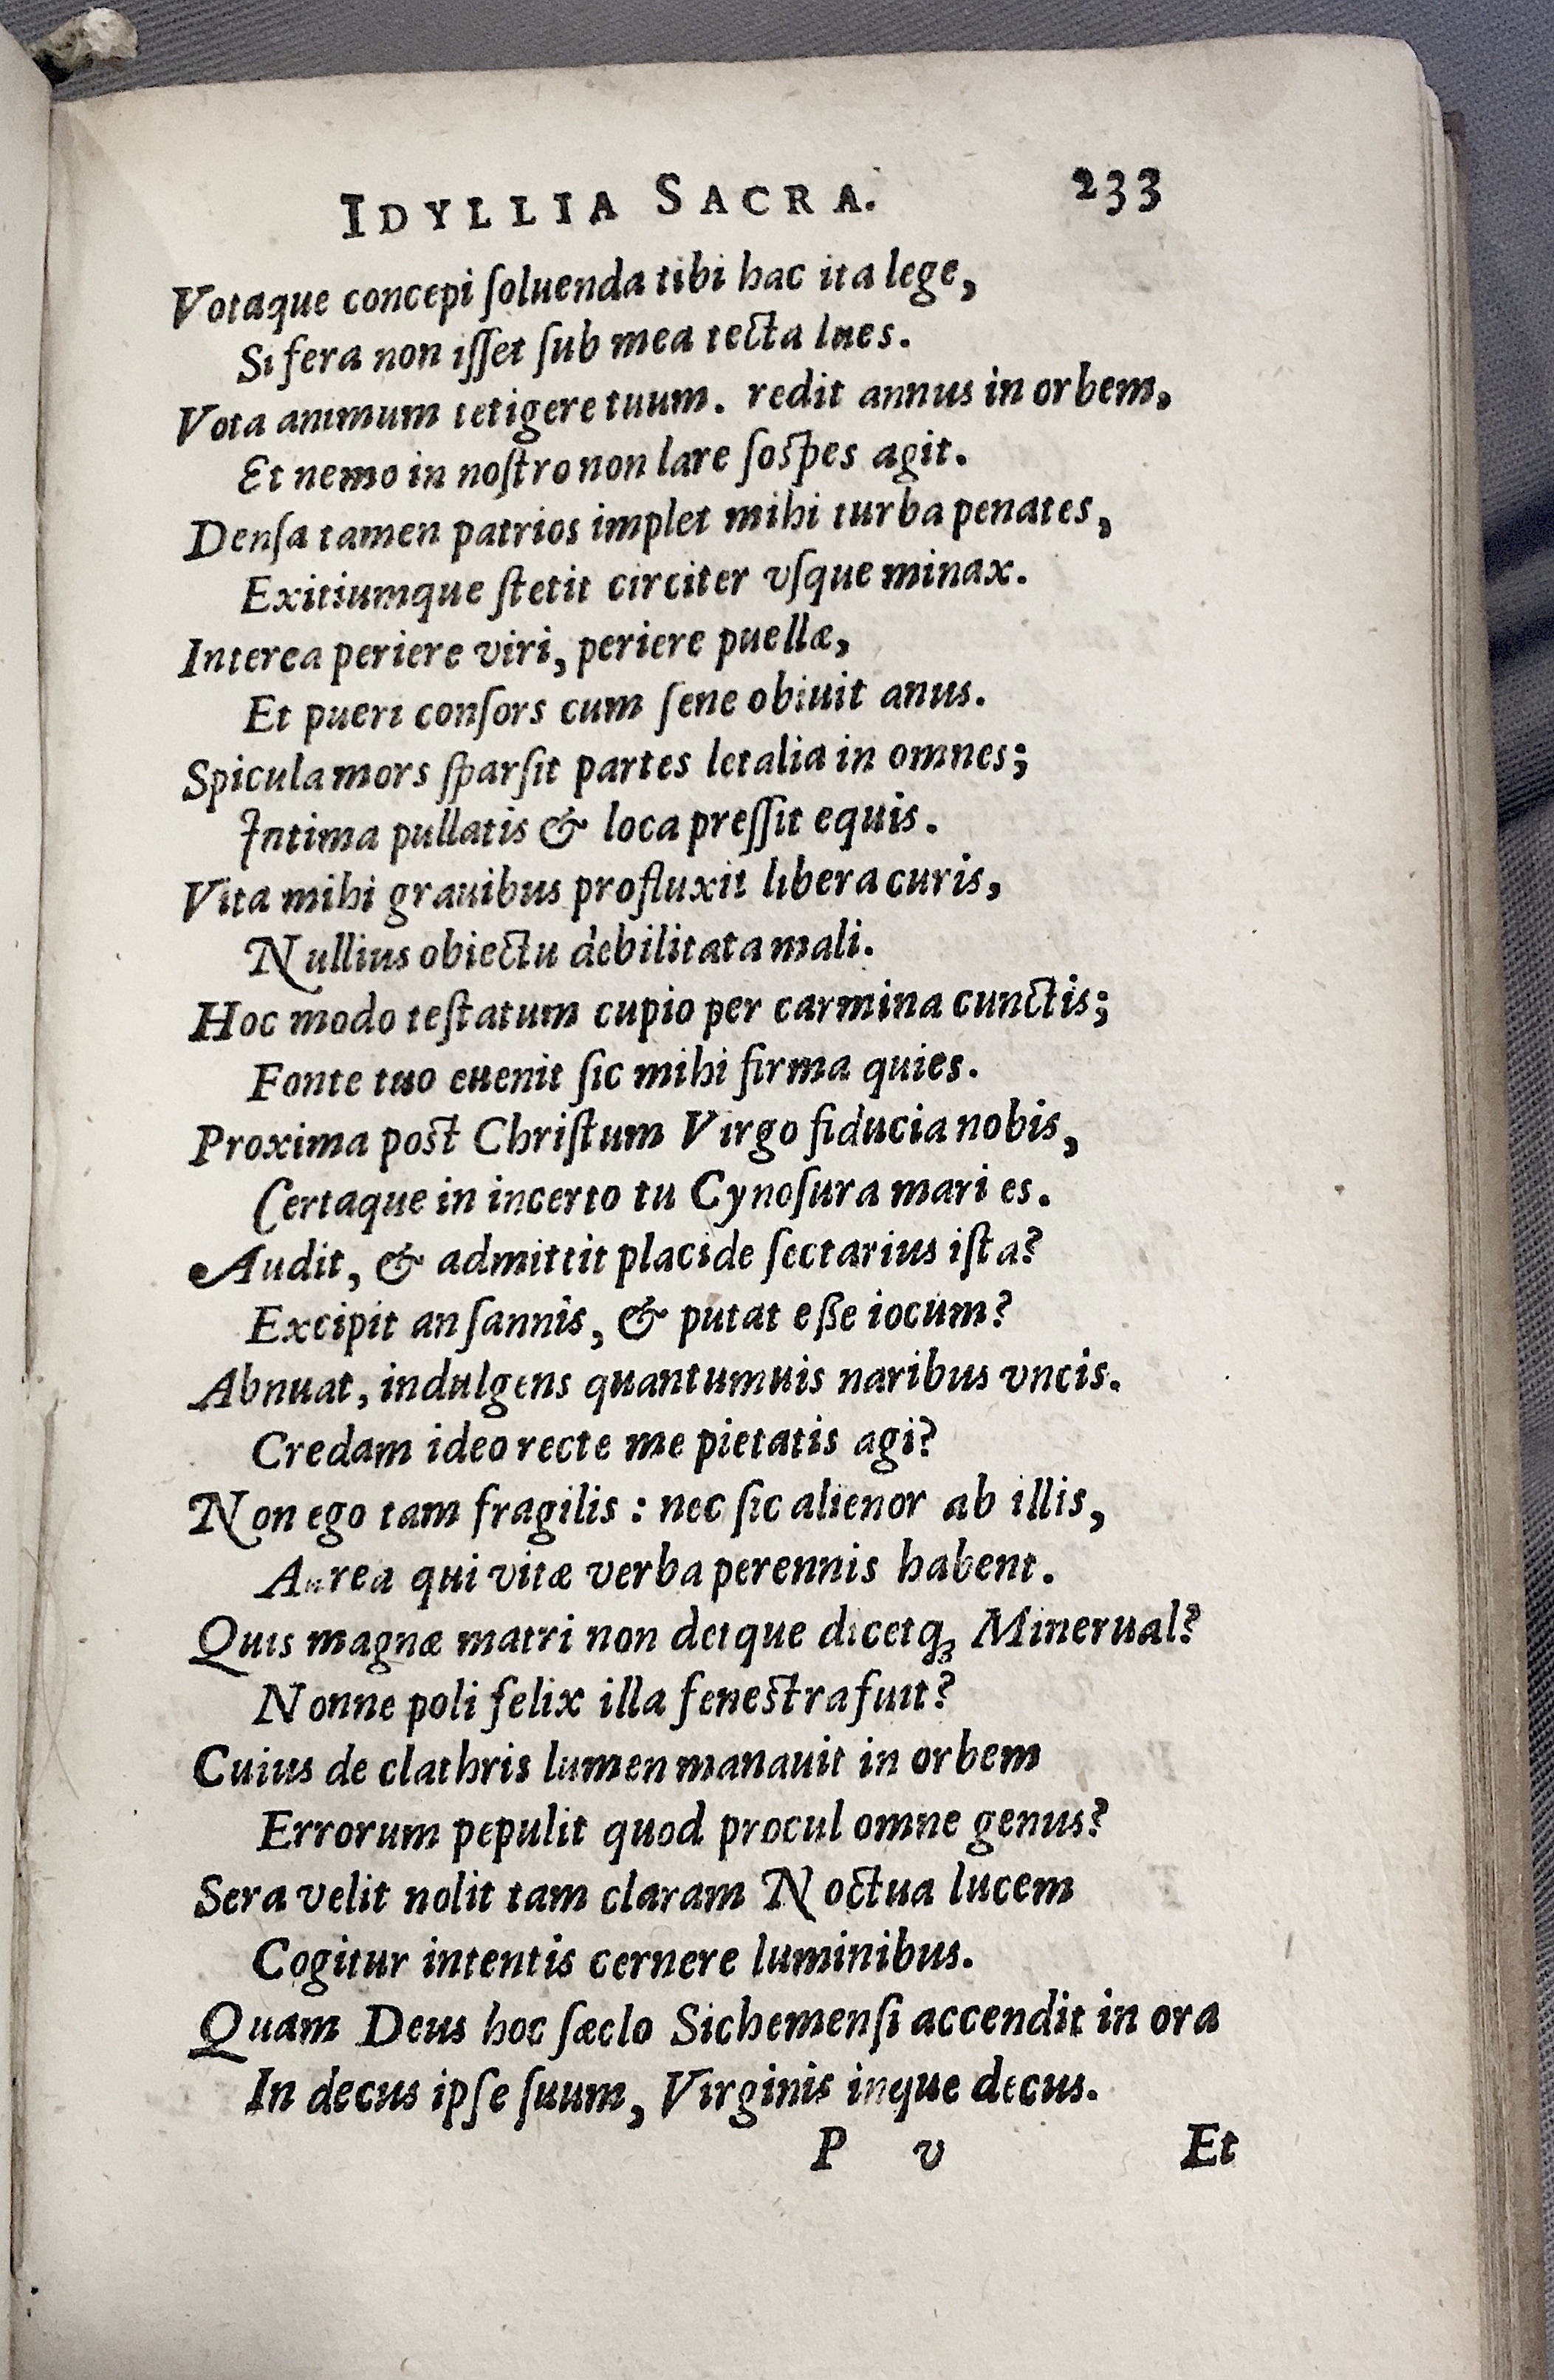 IDYLLIA SACRA. 233
Votaque concepi ſoluenda tibi hac ita lege,
Si fera non iſſet ſub mea tecta lues.
Vota animum tetigere tuum. redit annus in orbem,
Et nemo in noſtro non lare ſoſpes agit.
Denſa tamen patrios implet mihi turba penates,
Exitiumque ſtetit circiter vſque minax.
Interea periere viri, periere puellæ,
Et pueri conſors cum ſene obiuit anus.
Spicula mors ſparſit partes letalia in omnes;
Intima pullatis & loca preſſit equis.
Vita mihi grauibus profluxit libera curis,
Nullius obiectu debilitata mali.
Hoc modo teſtatum cupio per carmina cunctis;
Fonte tuo euenit ſic mihi firma quies.
Proxima poſt Chriſtum Virgo fiducia nobis,
Certaque in incerto tu Cynoſura mari es.
Audit, & admittit placide ſectarius iſta?
Excipit an ſannis, & putat eße iocum?
Abnuat, indulgens quantumuis naribus vncis.
Credam ideo recte me pietatis agi?
Non ego tam fragilis : nec ſic alienor ab illis,
Aurea qui vitæ verba perennis habent.
Quis magnæ matri non detque dicetq; Minerual?
Nonne poli felix illa feneſtra fuit?
Cuius de clathris lumen manauit in orbem
Errorum pepulit quod procul omne genus?
Sera velit nolit tam claram Noctua lucem
Cogitur intentis cernere luminibus.
Quam Deus hoc ſæclo Sichemenſi accendit in ora
In decus ipſe ſuum, Virginis inque decus.
P v Et